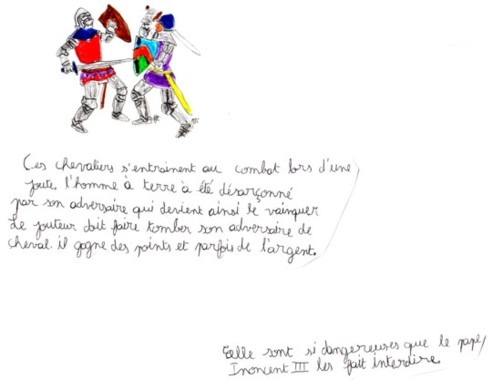 Ces chevaliers s'entrainent au combat lors d'une
joute, l'homme à terre à été désarçonné
par son adversaire qui devient ainsi le vainquer
Le jouteur doit faire tomber son adversaire de
cheval. il gagne des points et parfois de l'argent.
Telle sont si dangereuses que le pape
Inoncent III les fait interdire.